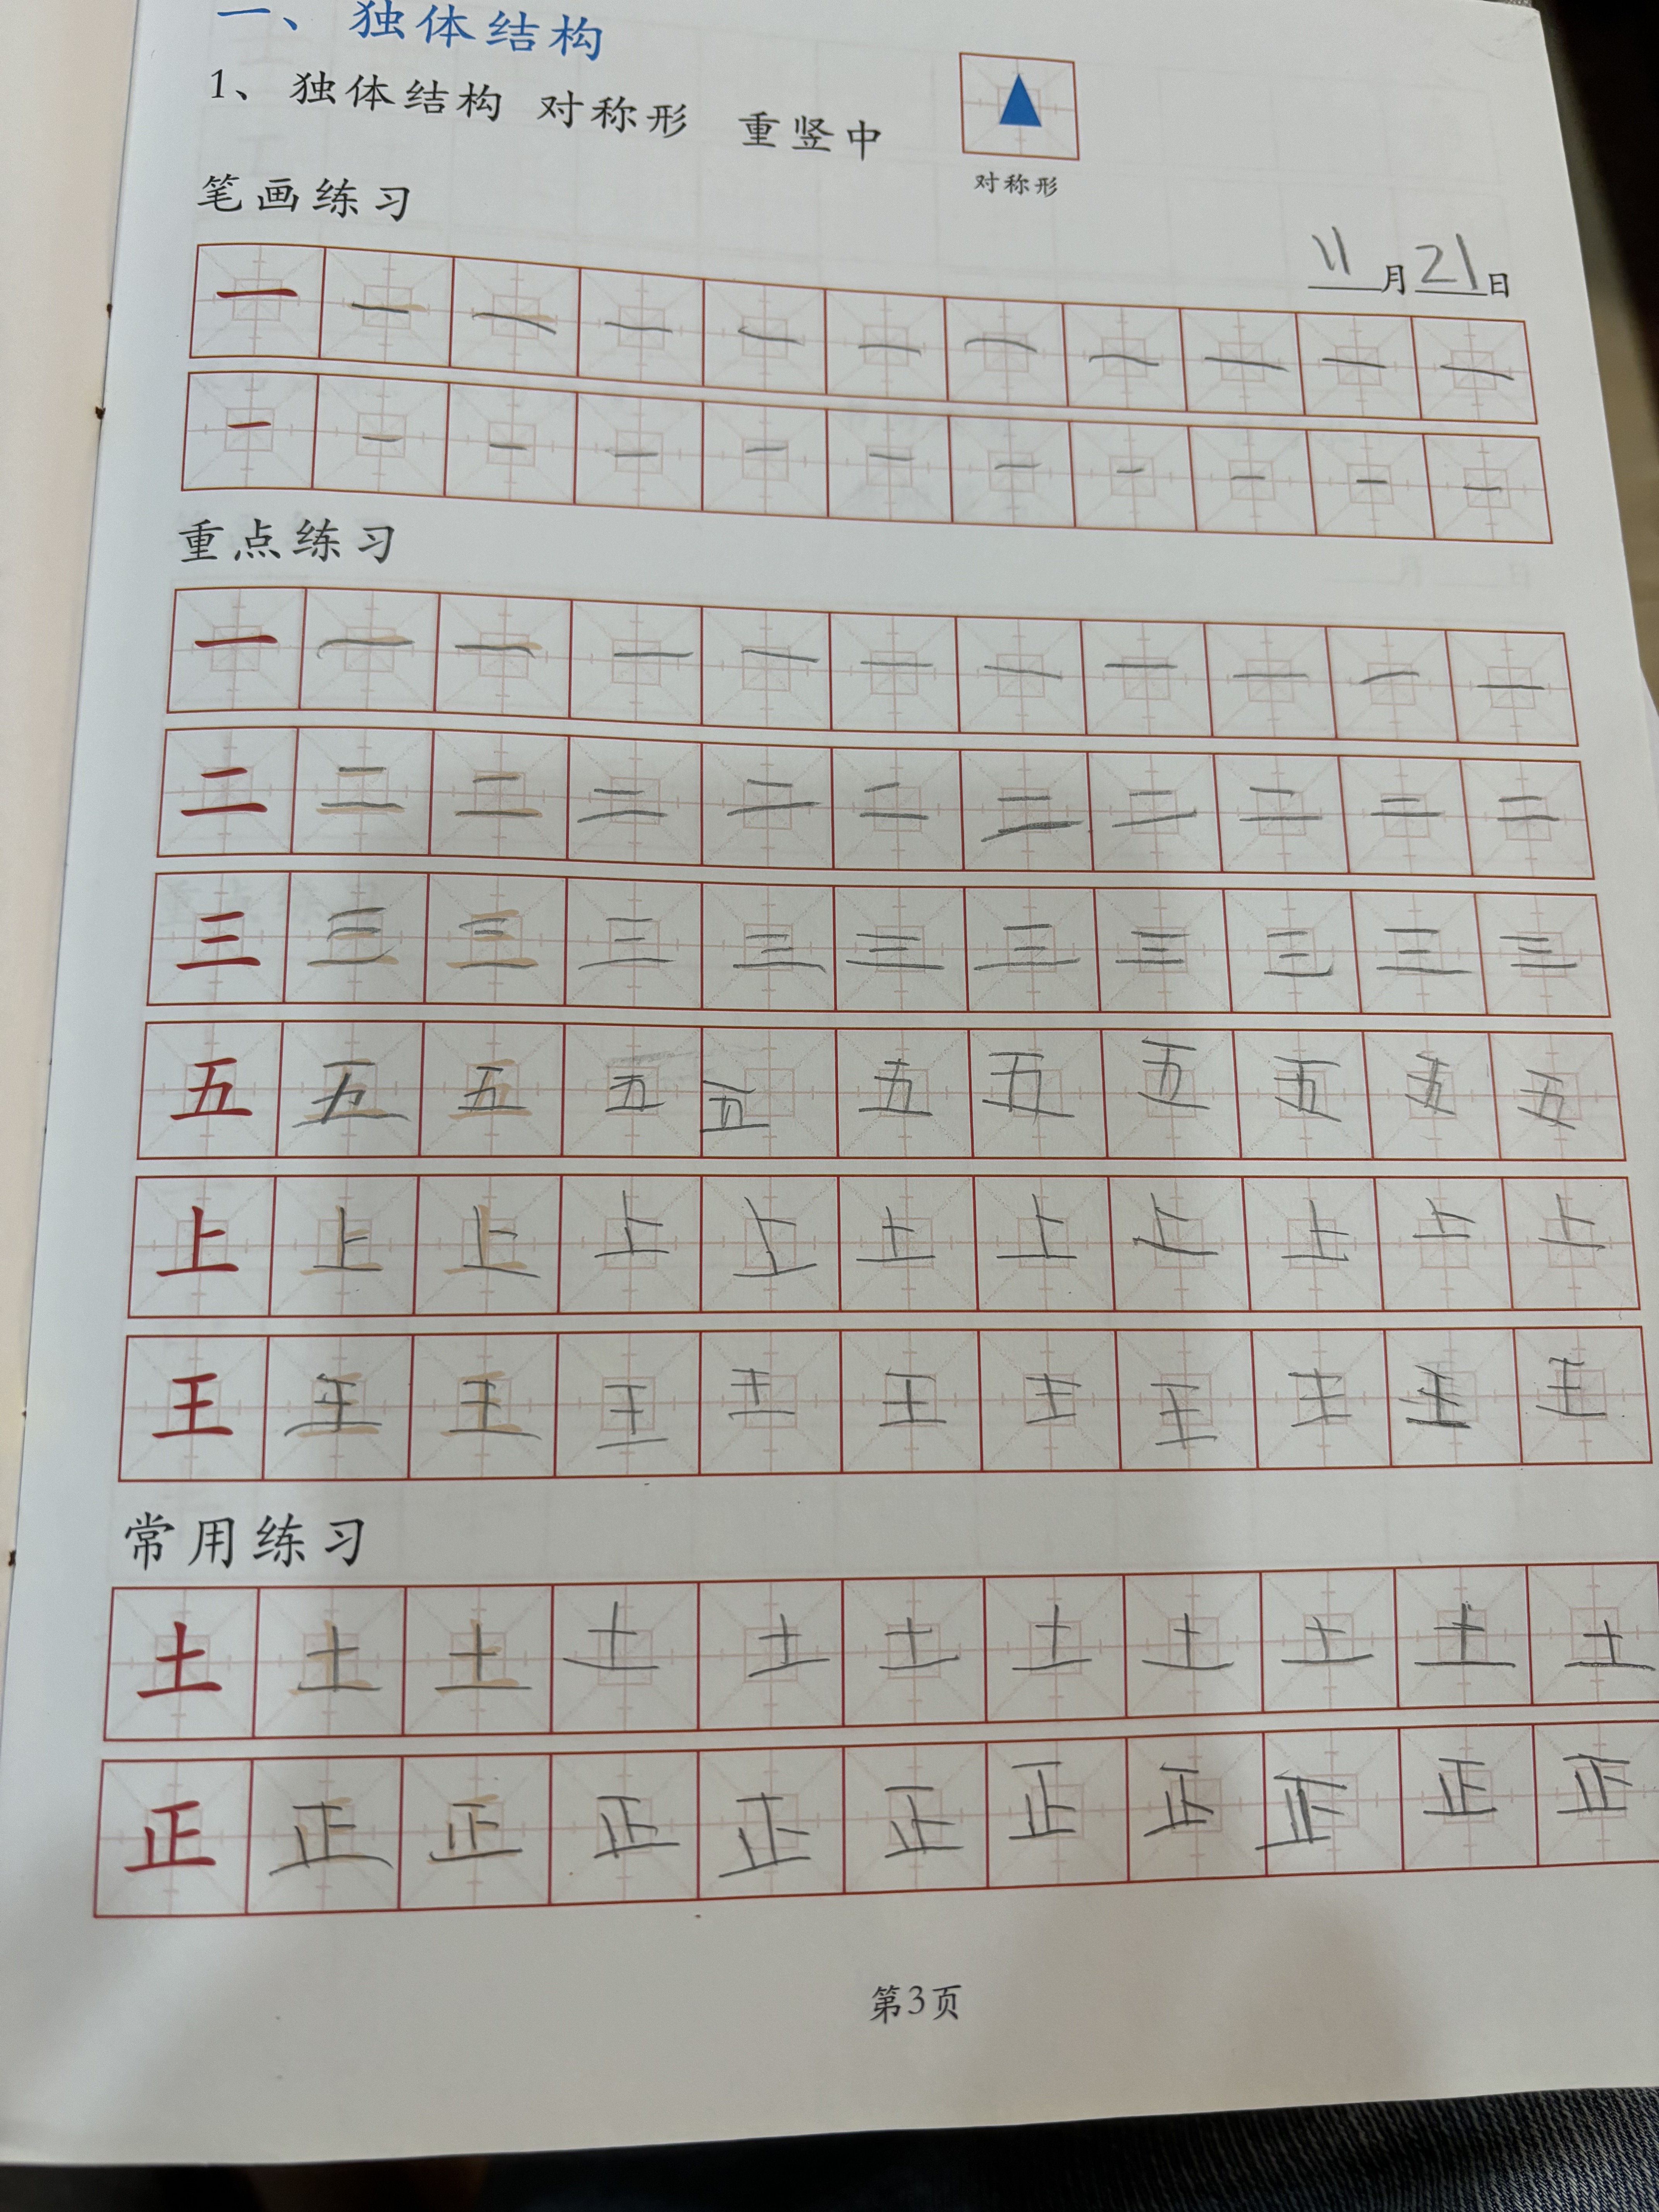 一、独体结构
1、独体结构 对称形 重竖中
对称形
笔画练习
11月21日
一 一 一 一 一 一 一 一 一 一 一
一 一 一 一 一 一 一 一 一 一 一
重点练习
一 一 一 一 一 一 一 一 一 一 一
二 二 二 二 二 二 二 二 二 二 二
三 三 三 三 三 三 三 三 三 三 三
五 五 五 五 五 五 五 五 五 五 五
上 上 上 上 上 上 上 上 上 上 上
王 王 王 王 王 王 王 王 王 王 王
常用练习
土 土 土 土 土 土 土 土 土 土 土
正 正 正 正 正 正 正 正 正 正 正
第3页